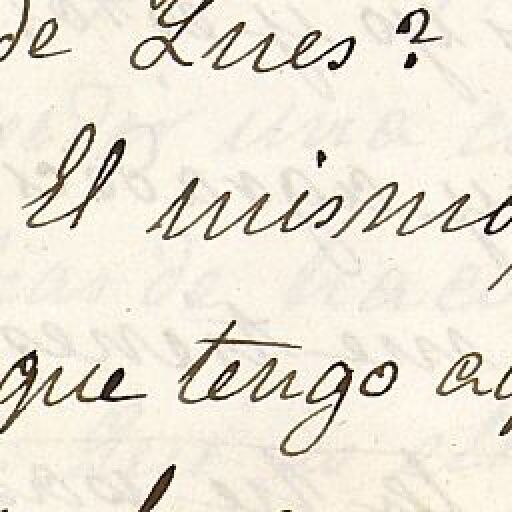 de Lues?
El mismo,
que tengo aq